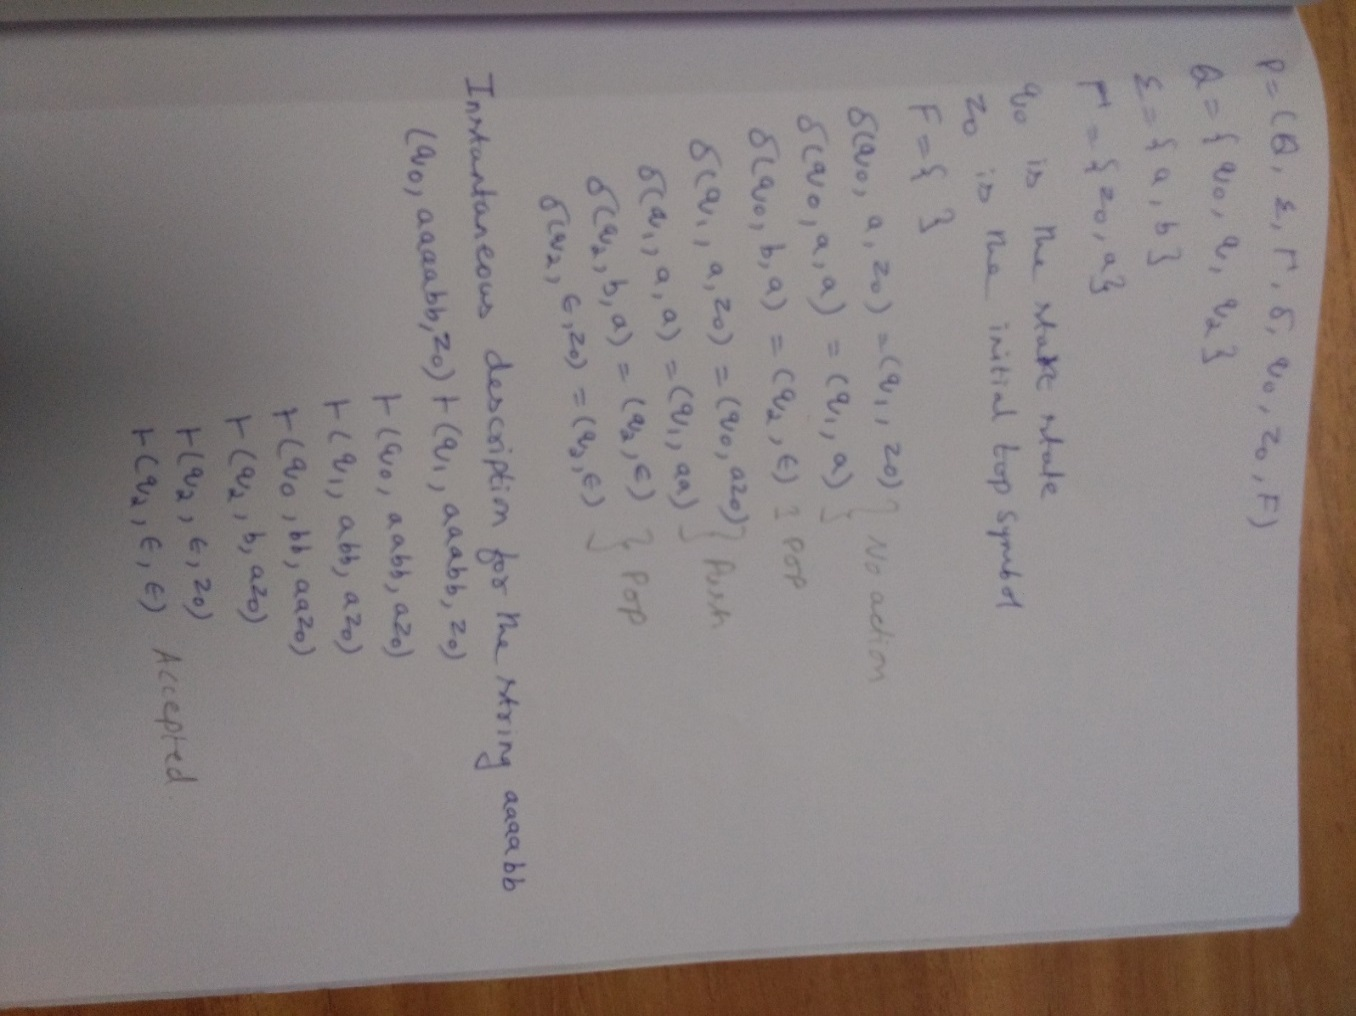 P = (Q, Σ, Γ, δ, q0, z0, F)
Q = { q0, q1 q2 }
Σ = { a, b }
Γ = { z0, a }
q0 is the state state
z0 is the initial top symbol
F = { }
δ(q0, a, z0) = (q1, z0) } No action
δ(q0, a, a) = (q1, a) }
δ(q0, b, a) = (q2, ε) } POP
δ(q1, a, z0) = (q0, az0) } Push
δ(q1, a, a) = (q1, aa) }
δ(q2, b, a) = (q2, ε) } POP
δ(q2, ε, z0) = (q2, ε) }
Instantaneous description for the string aaaabb
(q0, aaaabb, z0) ⊢ (q1, aaabb, z0)
⊢ (q0, aabb, az0)
⊢ (q1, abb, az0)
⊢ (q0, bb, aaz0)
⊢ (q2, b, az0)
⊢ (q2, ε, z0)
⊢ (q2, ε, ε) Accepted.